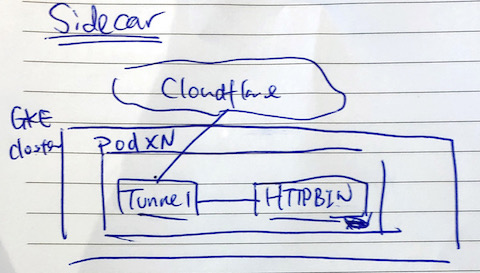 Sidecar
Cloudflare
GKE
cluster
Pod XN
Tunnel
HTTPBIN